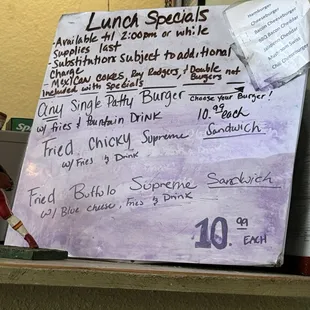 Lunch Specials
- Available til 2:00pm or while
supplies last
- Substitutions Subject to additional
Charge
- Mexican cokes, Roy Rodgers, / Double
Burgers not
Included with Specials
Any Single Patty Burger
Choose Your Burger!
w/ fries & fountain Drink
10.99 each
Fried, Chicky Supreme Sandwich
w/ Fries & Drink
Fried Buffalo Supreme Sandwich
w/ Blue cheese, Fries & Drink
10.99
EACH
Hamburger
Cheeseburger
Bacon Cheddar